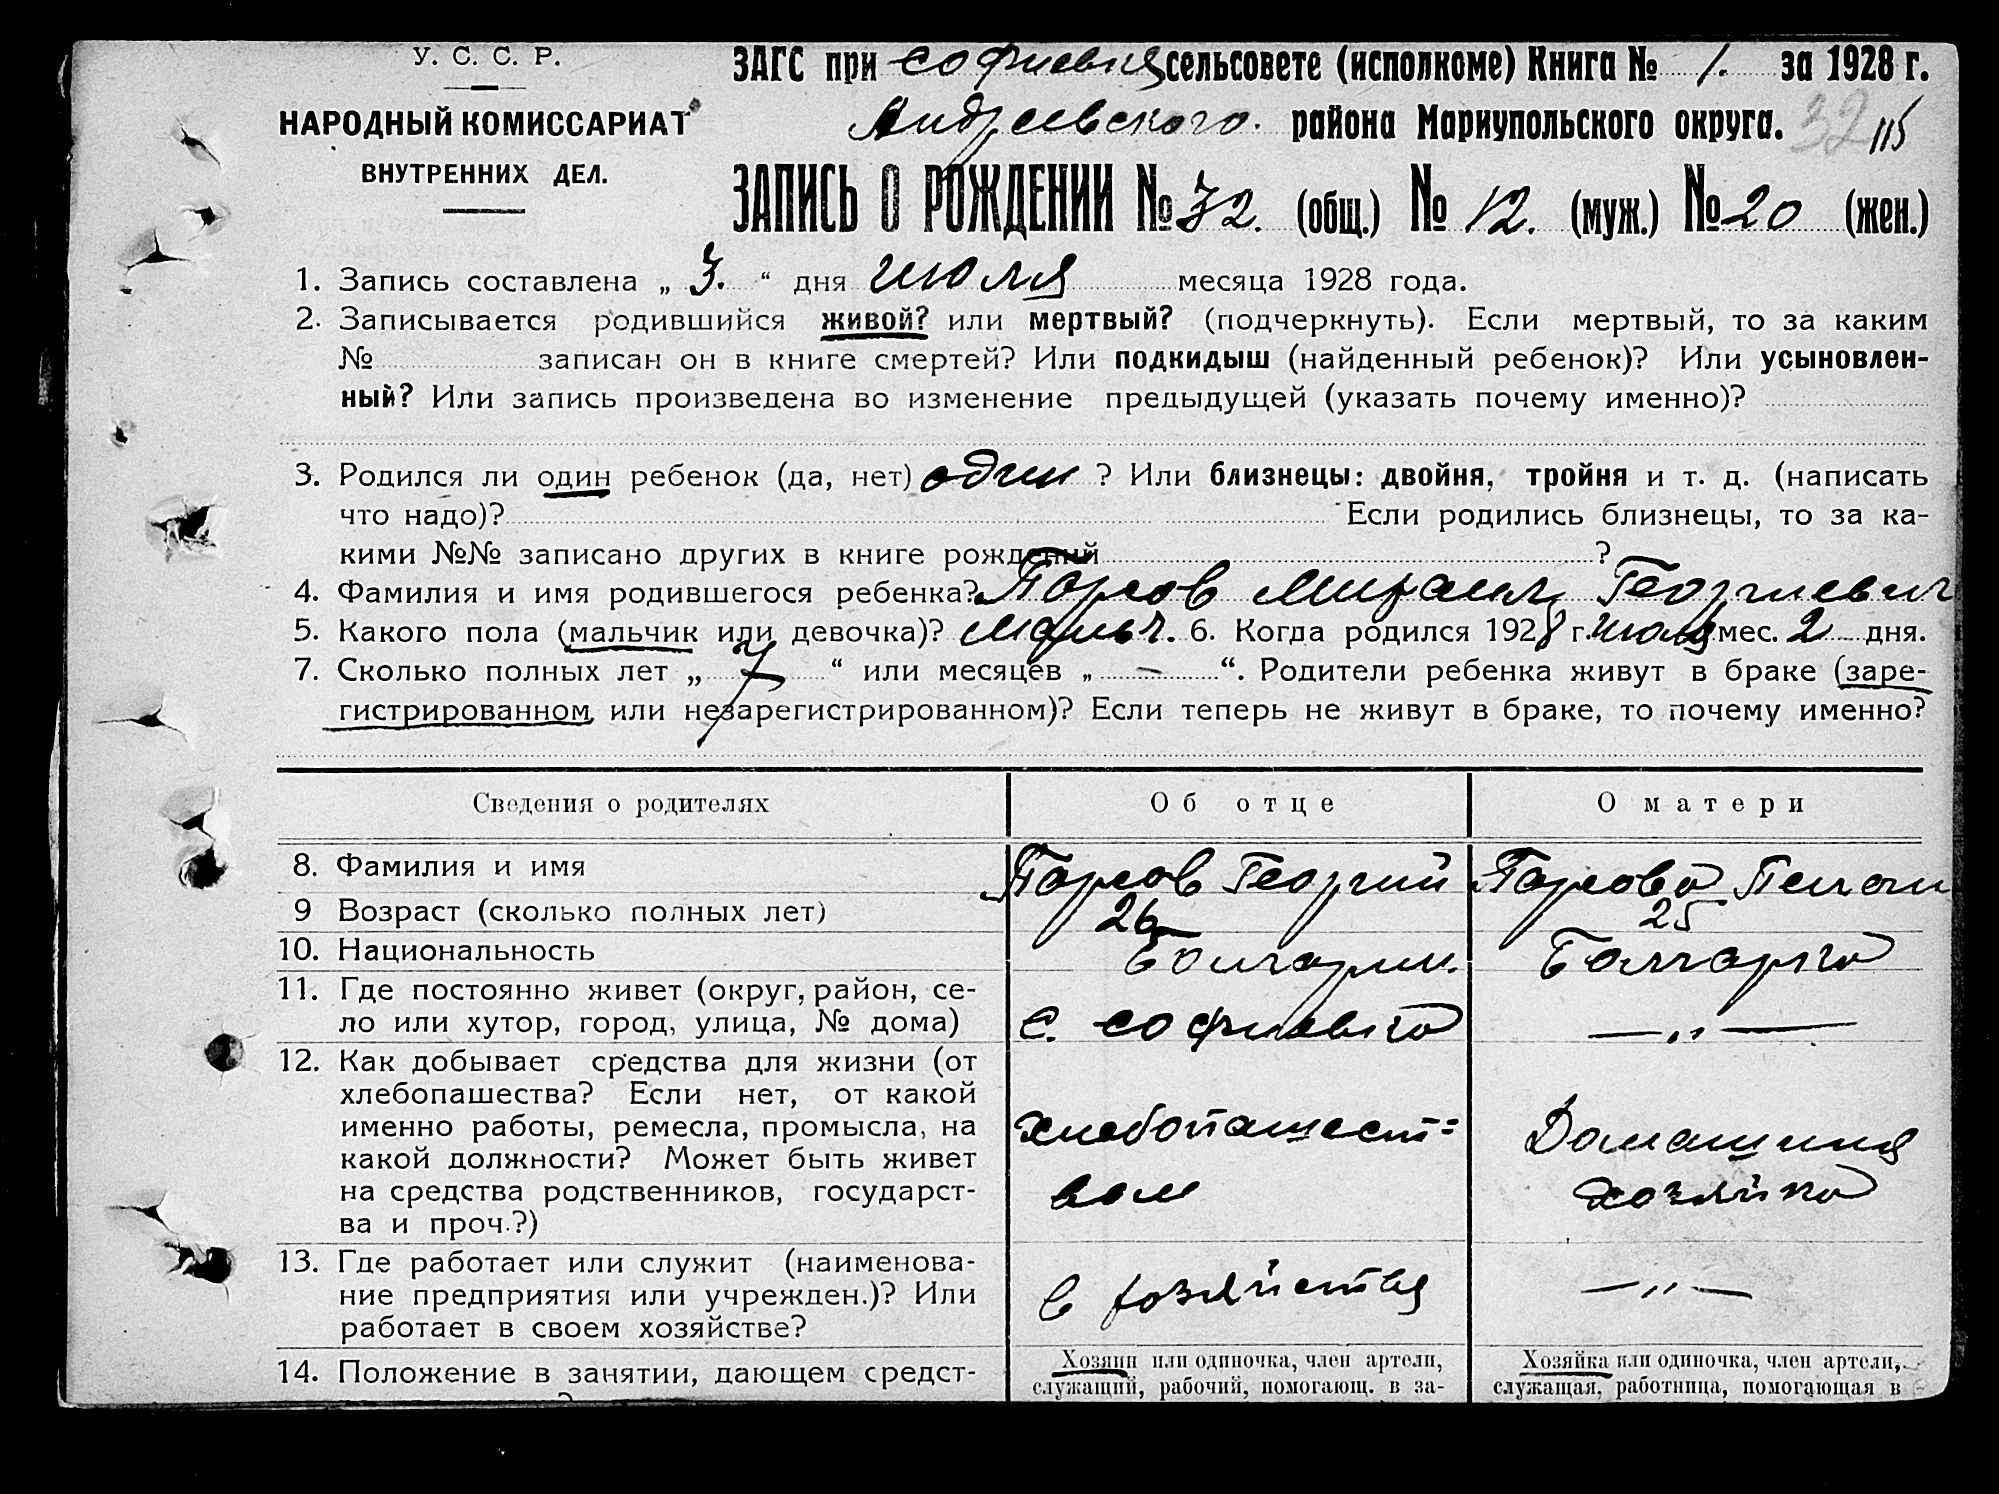 У. С. С. Р.
НАРОДНЫЙ КОМИССАРИАТ
ВНУТРЕННИХ ДЕЛ.
ЗАГС при сельсовете (исполкоме) Книга № 1. за 1928 г.
Андреевского. района Мариупольского округа. 32
ЗАПИСЬ О РОЖДЕНИИ № 32. (общ.) № 12. (муж.) № 20 (жен.)
1. Запись составлена „ 3. “ дня июля месяца 1928 года.
2. Записывается родившийся живой? или мертвый? (подчеркнуть). Если мертвый, то за каким
№ записан он в книге смертей? Или подкидыш (найденный ребенок)? Или усыновлен-
ный? Или запись произведена во изменение предыдущей (указать почему именно)?
3. Родился ли один ребенок (да, нет) один ? Или близнецы: двойня, тройня и т. д. (написать
что надо)? Если родились близнецы, то за ка-
кими №№ записано других в книге рождений ?
4. Фамилия и имя родившегося ребенка? Михаил Георгиевич
5. Какого пола (мальчик или девочка)? Мальч. 6. Когда родился 1928 г. июля мес. 2 дня.
7. Сколько полных лет „ 7 “ или месяцев „ — “. Родители ребенка живут в браке (заре-
гистрированном, или незарегистрированном)? Если теперь не живут в браке, то почему именно?
Сведения о родителях Об отце О матери
8. Фамилия и имя Георгий
9 Возраст (сколько полных лет) 26 25
10. Национальность Болгарин. Болгарка
11. Где постоянно живет (округ, район, се-
ло или хутор, город, улица, № дома) с. Софиевка — „ —
12. Как добывает средства для жизни (от
хлебопашества? Если нет, от какой
именно работы, ремесла, промысла, на
какой должности? Может быть живет
на средства родственников, государст-
ва и проч.?)
хлебопашест=
вом
Домашния
хозяйка
13. Где работает или служит (наименова-
ние предприятия или учрежден.)? Или
работает в своем хозяйстве?
в хозяйства — „ —
14. Положение в занятии, дающем средст-
Хозяин или одиночка, член артели,
служащий, рабочий, помогающ. в за-
Хозяйка или одиночка, член артели,
служащая, работница, помогающая в